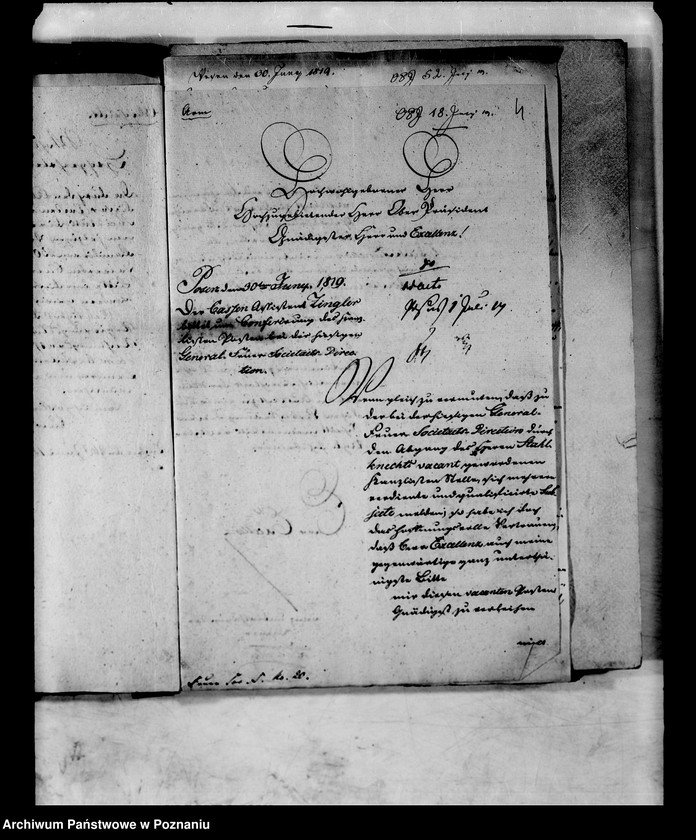 Posen den 30. Juny 1819.
Hochwohlgeborner Herr
Hochzugebietender Herr Ober Präsident
Gnädigster Herr und Excellenz!
Posen den 30ten Juny. 1819.
Der Cassen Assistent Zingler
bittet um Conferirung des Kanz-
listen Postens bei der hiesigen
General-Feuer Societaets Direc-
tion.
1 Juli 19
Wenn gleich zu vermuten, daß zu
der bei der hiesigen General-
Feuer Societaets Direction durch
den Abgang des Herrn Stahl-
knechts vacant gewordenen
Kanzlisten Stelle, sich mehrere
verdiente und qualificirte Sub-
jecte melden; so habe ich doch
das hoffnungsvolle Vertrauen,
daß Euer Excellenz auch meine
gegenwärtige ganz unterthä-
nigste Bitte
mir diesen vacanten Posten
Gnädigst zu verleihen
nicht
Archiwum Państwowe w Poznaniu